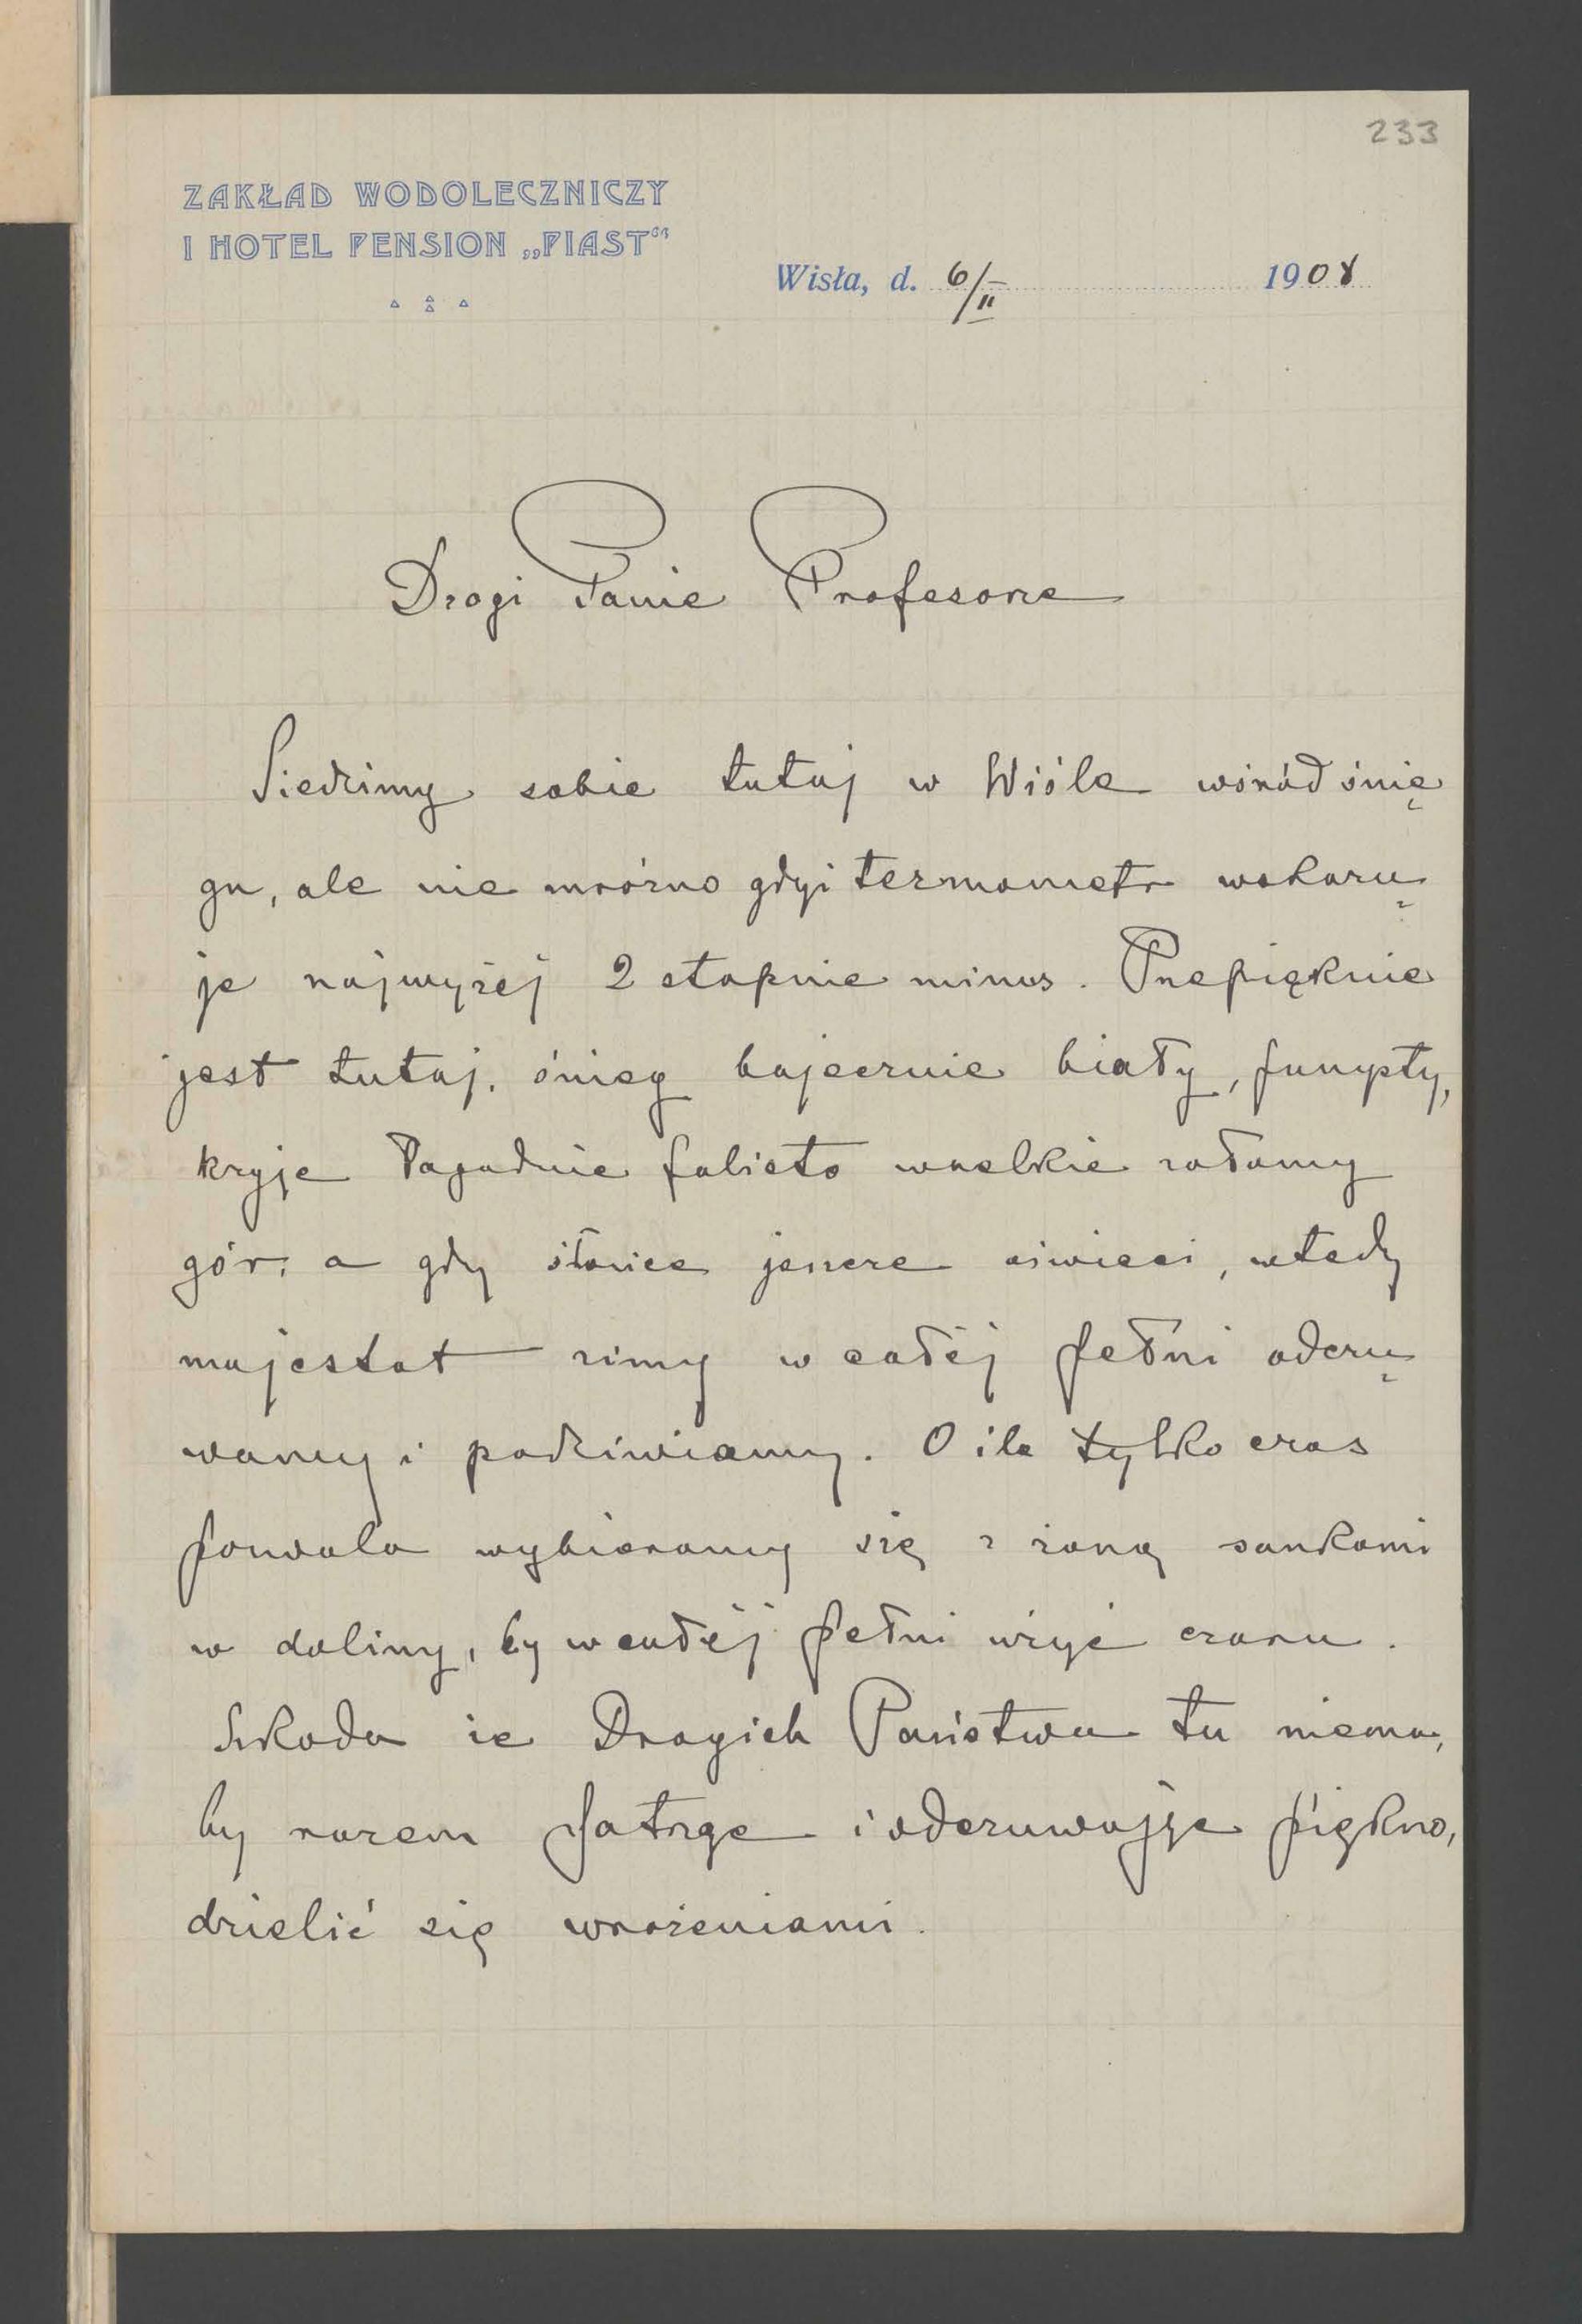 233
ZAKŁAD WODOLECZNICZY
I HOTEL PENSION „PIAST“
Wisła, d. 6/II 1908
Drogi Panie Profesorze
Siedzimy sobie tutaj w Wiśle wśród śnie
gu, ale nie mroźno gdyż termometr wskazu
je najwyżej 2 stopnie minus. Przepięknie
jest tutaj, śnieg bajecznie biały, puszysty,
kryje łagodnie falisto wszelkie załamy
gór, a gdy słońce jeszcze oświeci, wtedy
majestat zimy w całéj pełni odczu
wamy i podziwiamy. O ile tylko czas
pozwala wybieramy się z żoną sankami
w doliny, by w całéj pełni użyć czaru.
Szkoda że Drogich Państwa tu niema,
by razem patrząc i odczuwając piękno,
dzielić się wrażeniami.